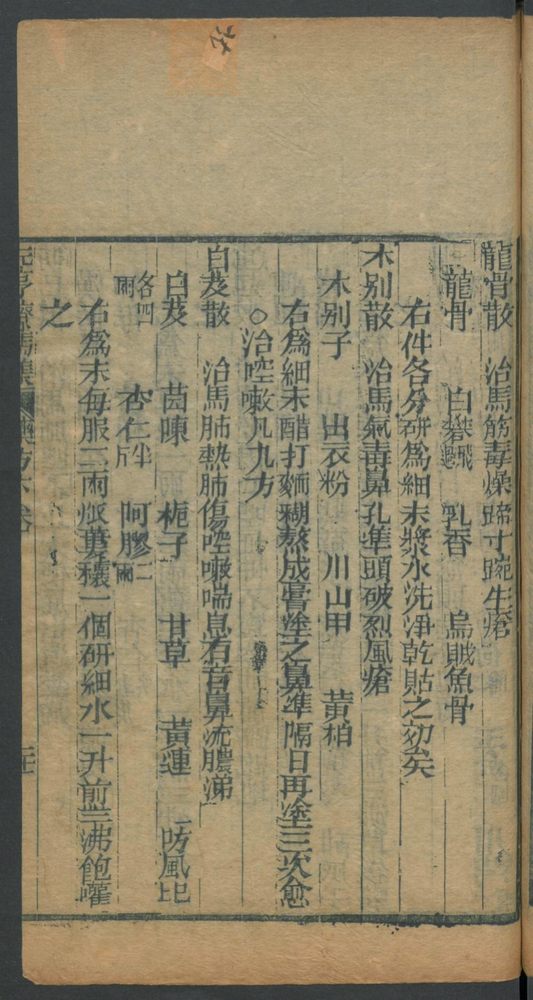 龍骨散　治馬筋毒燥蹄寸跪生瘡
龍骨　白礬飛過　乳香　烏賊魚骨
右件各分研為細末漿水洗淨乾貼之効矣
木別散　治馬氣毒鼻孔準頭破烈風瘡
木別子　出衣粉　川山甲　黃柏
右為細末醋打麵糊熬成膏塗之鼻準隔日再塗三次愈
○治啌嗽凡九方
白芨散　治馬肺熱肺傷啌嗽喘息有音鼻流膿涕
白芨　茵陳　梔子　甘草　黃連　防風
各四兩　杏仁半斤　阿膠二兩
右為末每服二兩瓜蔞穰一個研細水一升前三沸飽嚾
之
元亨療馬集